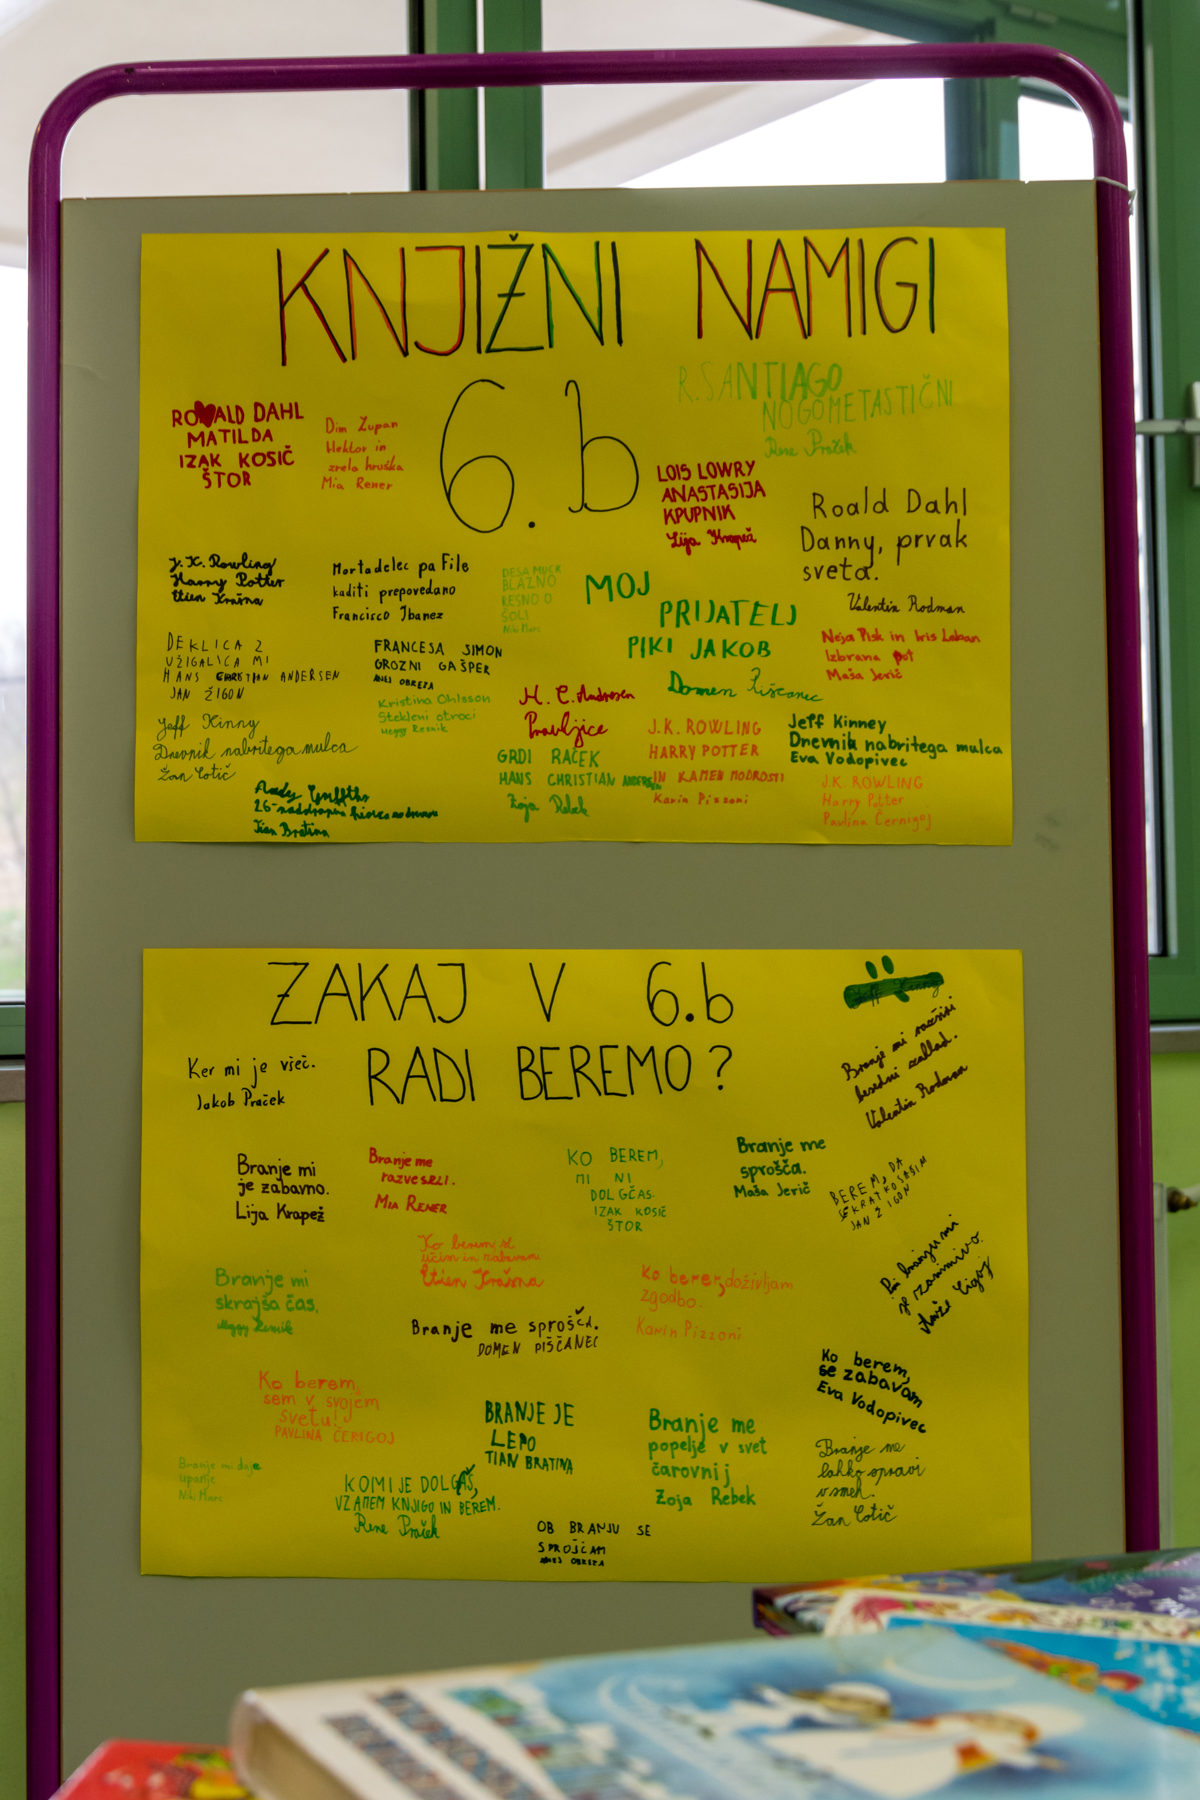 KNJIŽNI NAMIGI
6.b
R.SANTIAGO
NOGOMETASTIČNI
Rene Praček
ROALD DAHL
MATILDA
IZAK KOSIČ
ŠTOR
Dim Zupan
Hektor in
zrela hruška
Mia Rener
LOIS LOWRY
ANASTASIJA
KPUPNIK
Lija Krapež
Roald Dahl
Danny, prvak
sveta.
Valentin Rodman
J. K. Rowling
Harry Potter
Etien Krašna
Mortadelec pa File
kaditi prepovedano
Francisco Ibanez
DESA MUCK
BLAZNO
RESNO O
ŠOLI
Niki Marc
MOJ
PRIJATELJ
PIKI JAKOB
Domen Piščanec
Neja Pisk in Iris Laban
Izbrana pot
Maša Jerič
DEKLICA Z
UŽIGALICAMI
HANS CHRISTIAN ANDERSEN
JAN ŽIGON
FRANCESA SIMON
GROZNI GAŠPER
ANEJ OBREZA
Kristina Ohlsson
Stekleni otroci
Meggy Resnik
H. C. Andresen
Pravljice
Jeff Kinny
Dnevnik nabritega mulca
Žan Cotič
GRDI RAČEK
HANS CHRISTIAN ANDERSEN
Zoja Rebek
J.K. ROWLING
HARRY POTTER
IN KAMEN MODROSTI
Karin Pizzoni
Jeff Kinney
Dnevnik nabritega mulca
Eva Vodopivec
J.K. ROWLING
Harry Potter
Pavlina Černigoj
Andy Griffiths
26-nadstropna
Tian Bratina
ZAKAJ V 6.b
RADI BEREMO?
Jeff Kinny
Ker mi je všeč.
Jakob Praček
Branje mi razširi
besedni zaklad.
Valentin Rodman
Branje mi
je zabavno.
Lija Krapež
Branje me
razveseli.
MIA RENER
KO BEREM,
MI NI
DOLGČAS.
IZAK KOSIČ
ŠTOR
Branje me
sprošča.
Maša Jerič
BEREM, DA
SE KRATKOČASIM
JAN ŽIGON
Ko berem se
učim in zabavam
Etien Krašna
Pri branju mi
je zanimivo.
Branje mi
skrajša čas.
Meggy Resnik
Ko berem, doživljam
zgodbo.
Karin Pizzoni
Branje me sprošča.
DOMEN PIŠČANEC
Ko berem,
se zabavam
Eva Vodopivec
Ko berem,
sem v svojem
svetu!
PAVLINA ČERIGOJ
BRANJE JE
LEPO
TIAN BRATINA
Branje me
popelje v svet
čarovnij
Zoja Rebek
Branje me
lahko spravi
v smeh.
Žan Cotič
Branje mi daje
upanje
Niki Marc
KO MI JE DOLGČAS,
VZAMEM KNJIGO IN BEREM.
Rene Praček
OB BRANJU SE
SPROŠČAM
ANEJ OBREZA